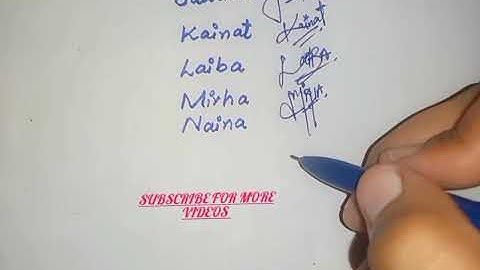 Kainat Kainat
Laiba LAIBA.
Mirha MIRHA.
Naina
SUBSCRIBE FOR MORE
VIDEOS